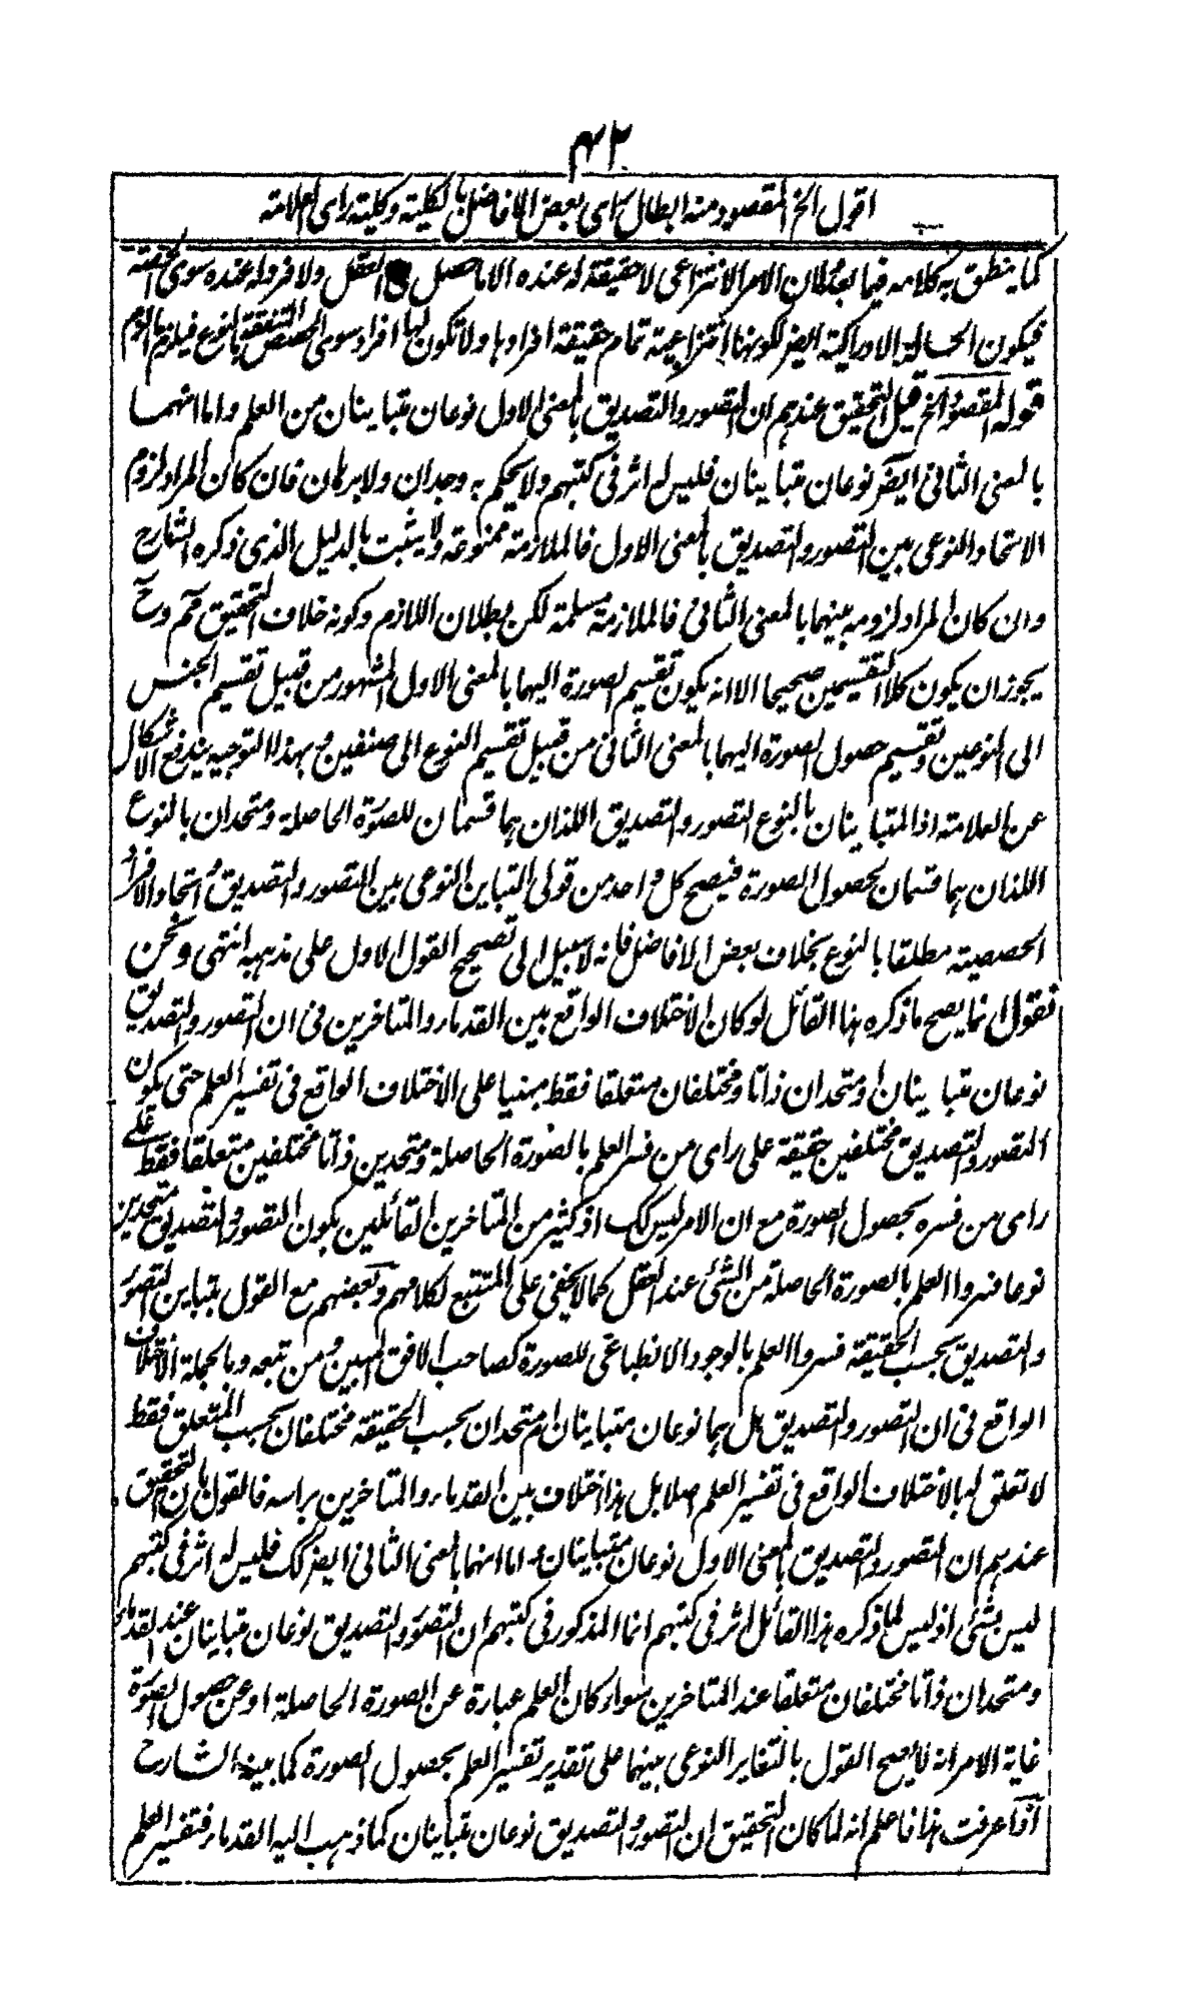 ٤٢
اقول الخ المقصود منه ابطال رأى بعض الافاضل بالكلية وكلية راى العلامة
كما ينطق به كلامه فيما بعد لان الامر الانتزاعى لا حقيقة له عنده الا ما حصل فى العقل ولا فرد له عنده سوى الحصة
فيكون الحالة الادراكية ايضا لكونها انتزاعية تمام حقيقة افرادها ولا تكون لها افراد سوى الحصص المتفقة بالنوع فيلزم ما الزم
قوله المقصود الخ قيل التحقيق عندهم ان التصور والتصديق بالمعنى الاول نوعان متباينان من العلم واما انهما
بالمعنى الثانى ايضا نوعان متباينان فليس له اثر فى كتبهم ولا يحكم به وجدان ولا برهان فان كان المراد لزوم
الاتحاد النوعى بين التصور والتصديق بالمعنى الاول فالملازمة ممنوعة ولا يثبت بالدليل الذى ذكره الشارح
وان كان المراد لزومه بينهما بالمعنى الثانى فالملازمة مسلمة لكن بطلان اللازم وكونه خلاف التحقيق مم وح
يجوز ان يكون كلا التقسيمين صحيحا الا انه يكون تقسيم الصورة اليهما بالمعنى الاول المشهور من قبيل تقسيم الجنس
الى النوعين وتقسيم حصول الصورة اليهما بالمعنى الثانى من قبيل تقسيم النوع الى صنفين وبهذا التوجيه يندفع الاشكال
عن العلامة اذ المتباينان بالنوع التصور والتصديق اللذان هما قسمان للصورة الحاصلة ومتحدان بالنوع
اللذان هما قسمان لحصول الصورة فيصح كل واحد من قولى التباين النوعى بين التصور والتصديق واتحاد الافراد
الحصصية مطلقا بالنوع بخلاف بعض الافاضل فانه لا سبيل الى تصحيح القول الاول على مذهبه انتهى ونحن
نقول انما يصح ما ذكره هذا القائل لو كان الاختلاف الواقع بين القدماء والمتاخرين فى ان التصور والتصديق
نوعان متباينان او متحدان ذاتا ومختلفان متعلقا فقط مبنيا على الاختلاف الواقع فى تفسير العلم حتى يكون
التصور والتصديق مختلفين حقيقة على راى من فسر العلم بالصورة الحاصلة ومتحدين ذاتا مختلفين متعلقا فقط على
راى من فسره بحصول الصورة مع ان الامر ليس كك اذ كثير من المتاخرين القائلين بكون التصور والتصديق متحدين
نوعا فسروا العلم بالصورة الحاصلة من الشئ عند العقل كما لا يخفى على المتتبع لكلامهم وبعضهم مع القول بتباين التصور
والتصديق بحسب الحقيقة فسروا العلم بالوجود الانطباعى للصورة كصاحب الافق المبين ومن تبعه وبالجملة الاختلاف
الواقع فى ان التصور والتصديق هل هما نوعان متباينان ام متحدان بحسب الحقيقة مختلفان بحسب المتعلق فقط
لا تعلق له بالاختلاف الواقع فى تفسير العلم اصلا بل هذا اختلاف بين القدماء والمتاخرين براسه فالقول بان التحقيق
عندهم ان التصور والتصديق بالمعنى الاول نوعان متباينان واما انهما بالمعنى الثانى ايضا كك فليس له اثر فى كتبهم
ليس بشئ اذ ليس لما ذكره هذا القائل اثر فى كتبهم انما المذكور فى كتبهم ان التصور والتصديق نوعان متباينان عند القدماء
ومتحدان ذاتا مختلفان متعلقا عند المتاخرين سواء كان العلم عبارة عن الصورة الحاصلة او عن حصول الصورة
غاية الامر انه لا يصح القول بالتغاير النوعى بينهما على تقدير تفسير العلم بحصول الصورة كما بينه الشارح
اذا عرفت هذا فاعلم انه لما كان التحقيق ان التصور والتصديق نوعان متباينان كما ذهب اليه القدماء فتفسير العلم